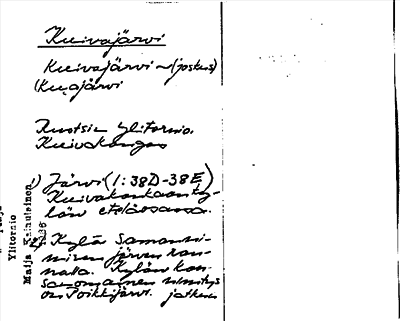 Kuivajärvi
Kuivajärvi ~ (joskus)
Kuajärvi
Ruotsin Ylitornio.
Kuivakangas
1) Järvi (1:38D-38E)
Kuivakankaan ky-
län eteläosassa.
2). Kylä saman ni-
misen järven ran-
nalla. Kylän kan-
sanomainen nimitys
on Poikkijärvi. jatkuu
Ylitornio
Maija